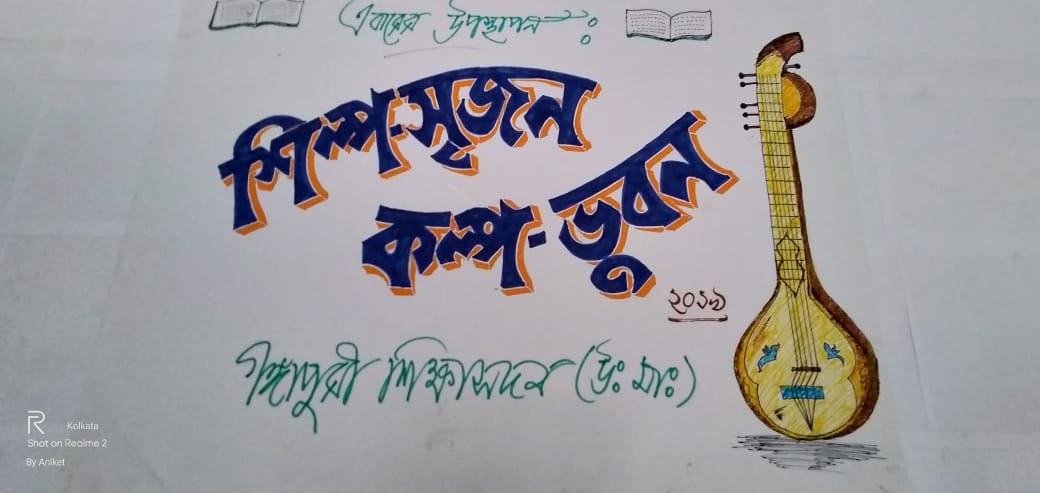 এবারের উপস্থাপন :
শিল্প-সৃজন
কল্প-ভুবন
২০১৯
গঙ্গাপুরী শিক্ষাসদন (উঃ মাঃ)
R Kolkata
Shot on Realme 2
By Aniket